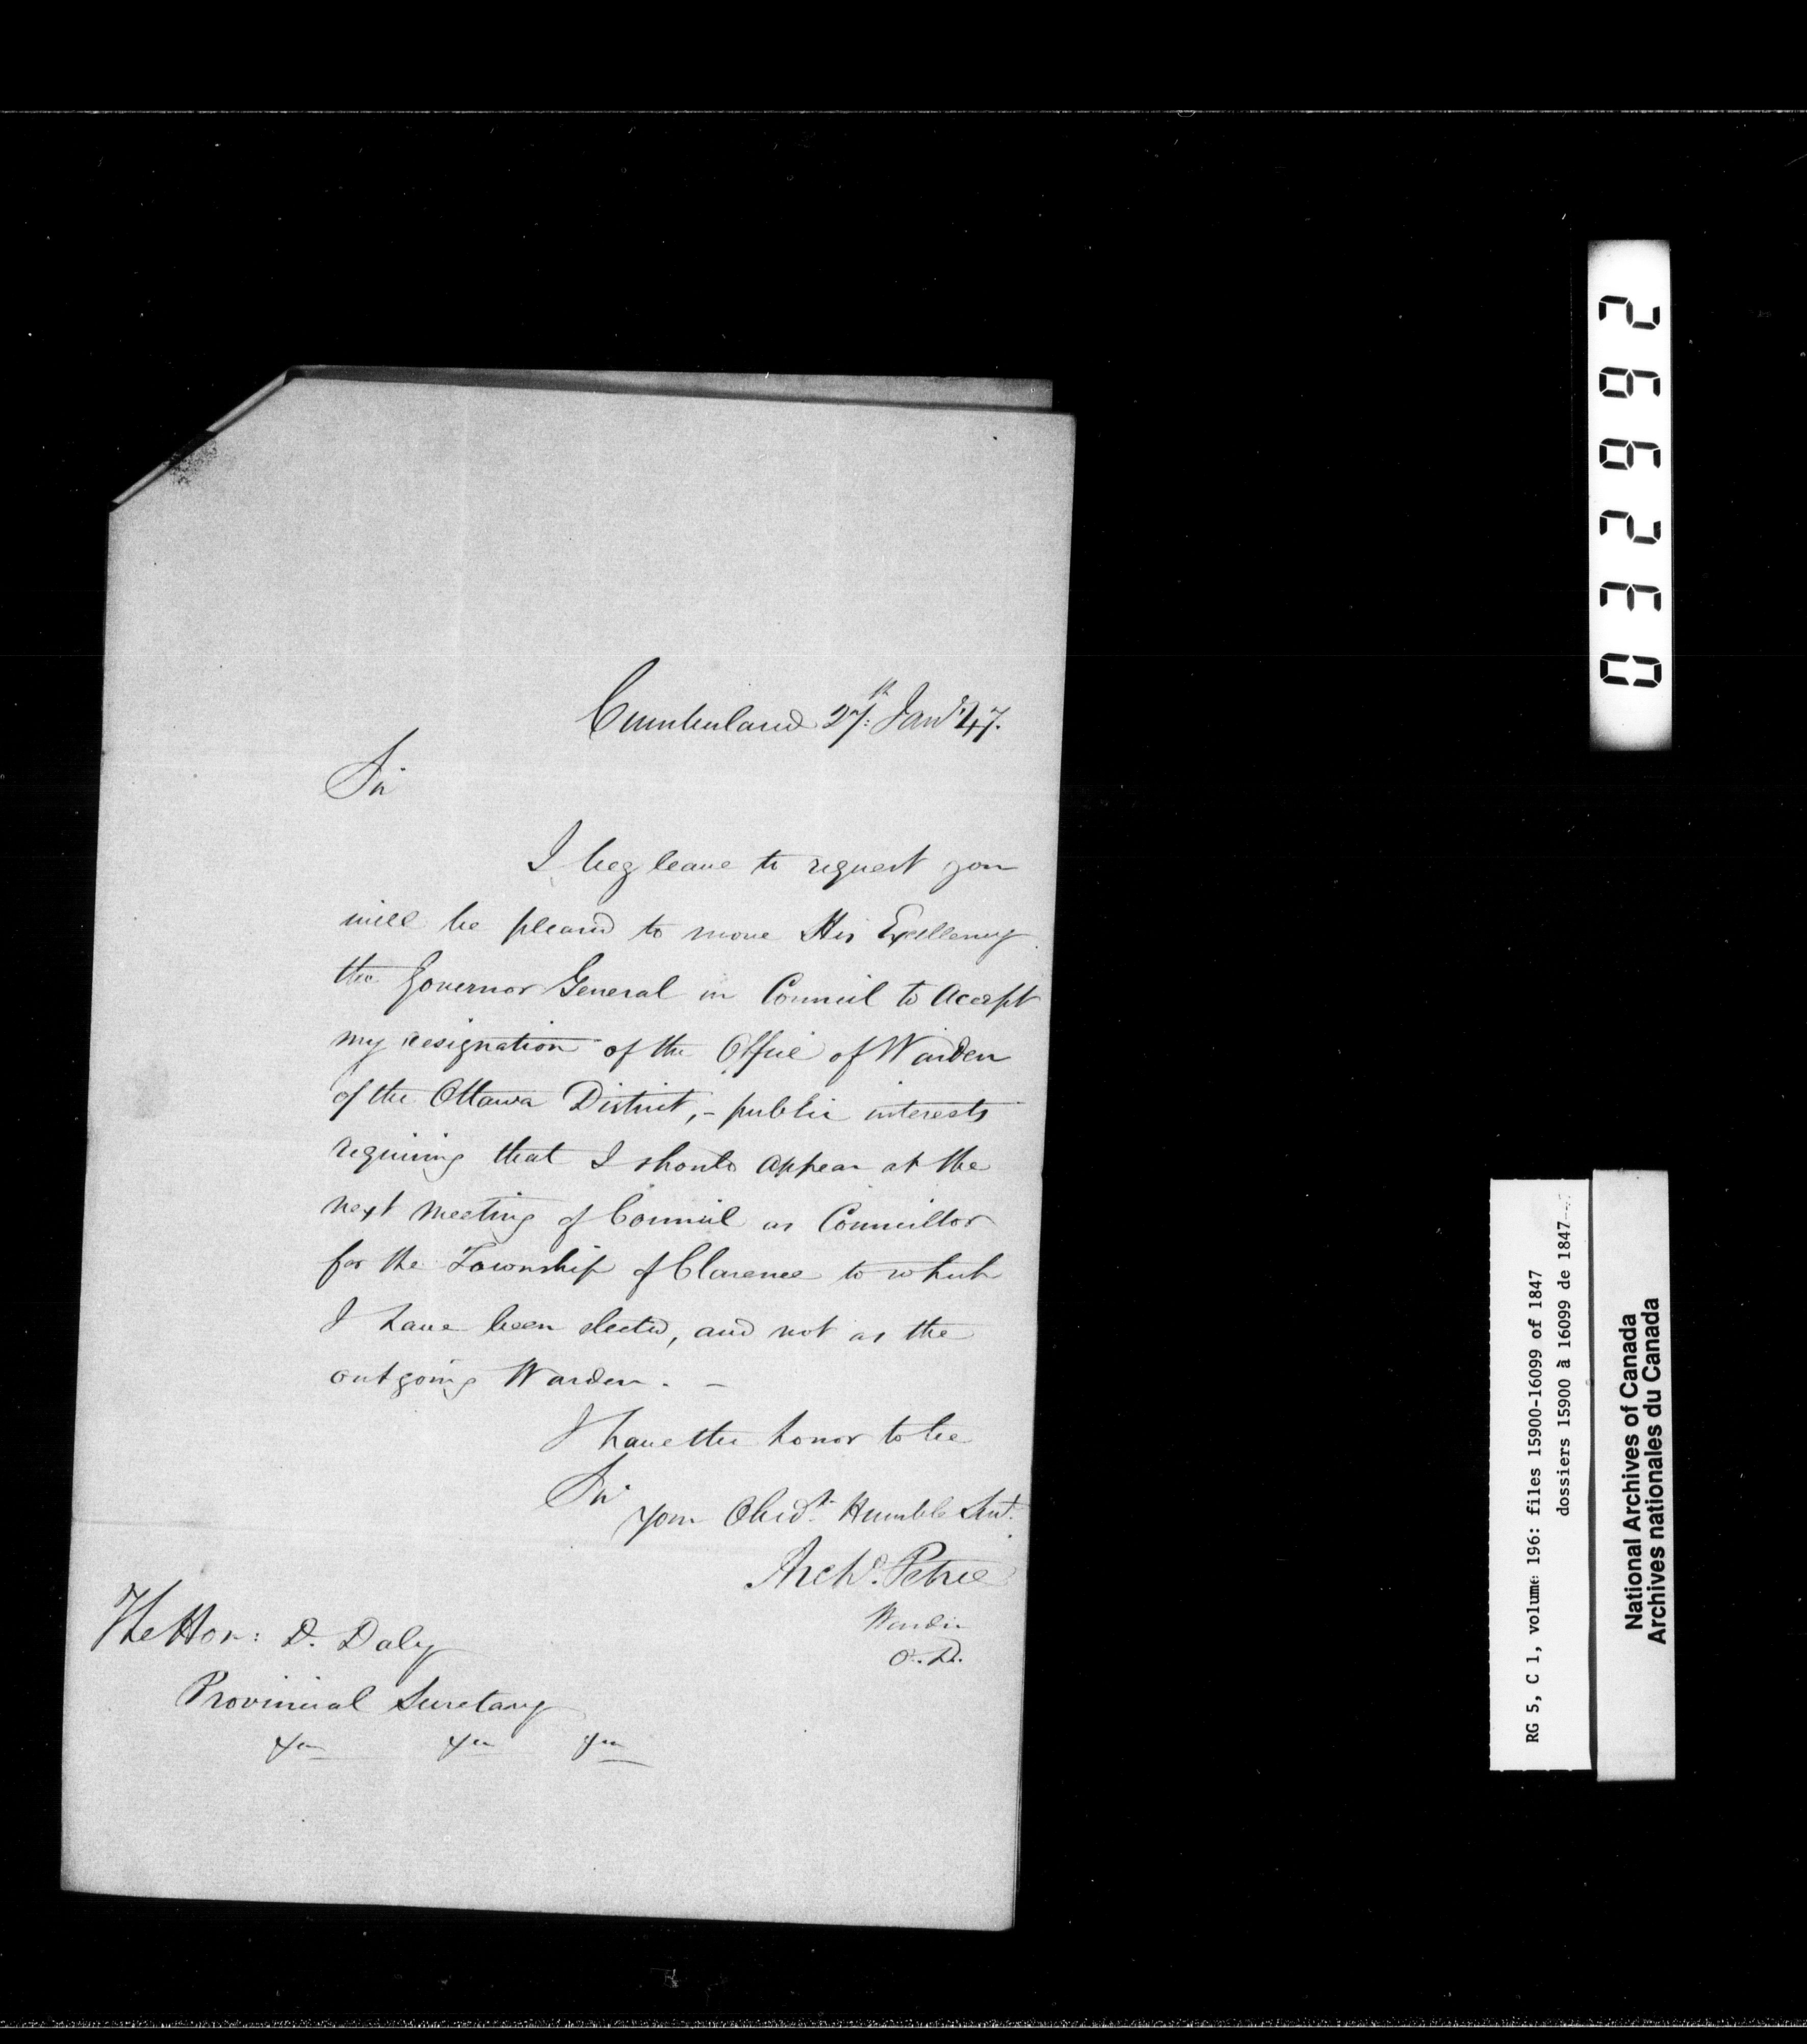 Cumberland 27th: Jany 47.
Sir
I beg leave to request you
will be pleased to move His Exellency
the Governor General in Council to Accept
my resignation of the Office of Warden
of the Ottawa District, – public interests
requiring that I should appear at the
next meeting of Council as Councillor
for the Township of Clarence to which
I have been elected, and not as the
outgoing Warden. –
I have the honor to be
Sir
your Obedt. Humble Sert.
Archd. Petrie
Warden
O. D.
The Hon: D. Daly
Provincial Secretary
032662
RG 5, C 1, volume 196: files 15900-16099 of 1847
dossiers 15900 à 16099 de 1847
National Archives of Canada
Archives nationales du Canada